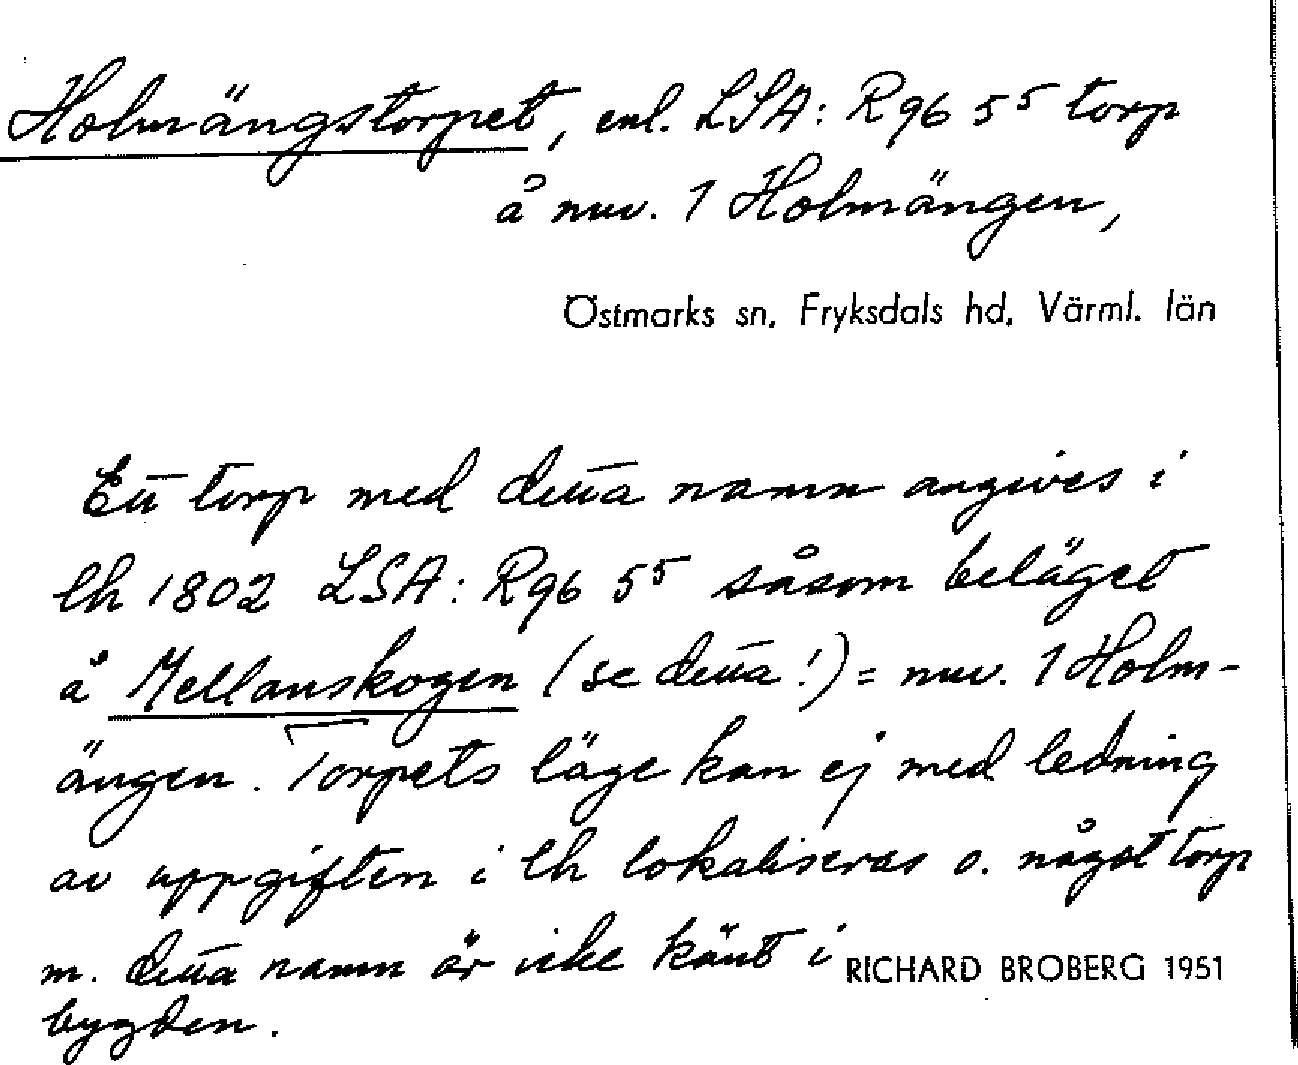 Holmängstorpet, enl. LSA: R96 5⁵ torp
å nuv. 1 Holmängen,
Östmarks sn, Fryksdals hd, Värml. län
Ett torp med detta namn angives i
lh 1802 LSA: R96 5⁵ såsom beläget
å Mellanskogen (se detta!) = nuv. 1 Holm-
ängen. Torpets läge kan ej med ledning
av uppgiften i lh lokaliseras o. något torp
m. detta namn är icke känt i
RICHARD BROBERG 1951
bygden.